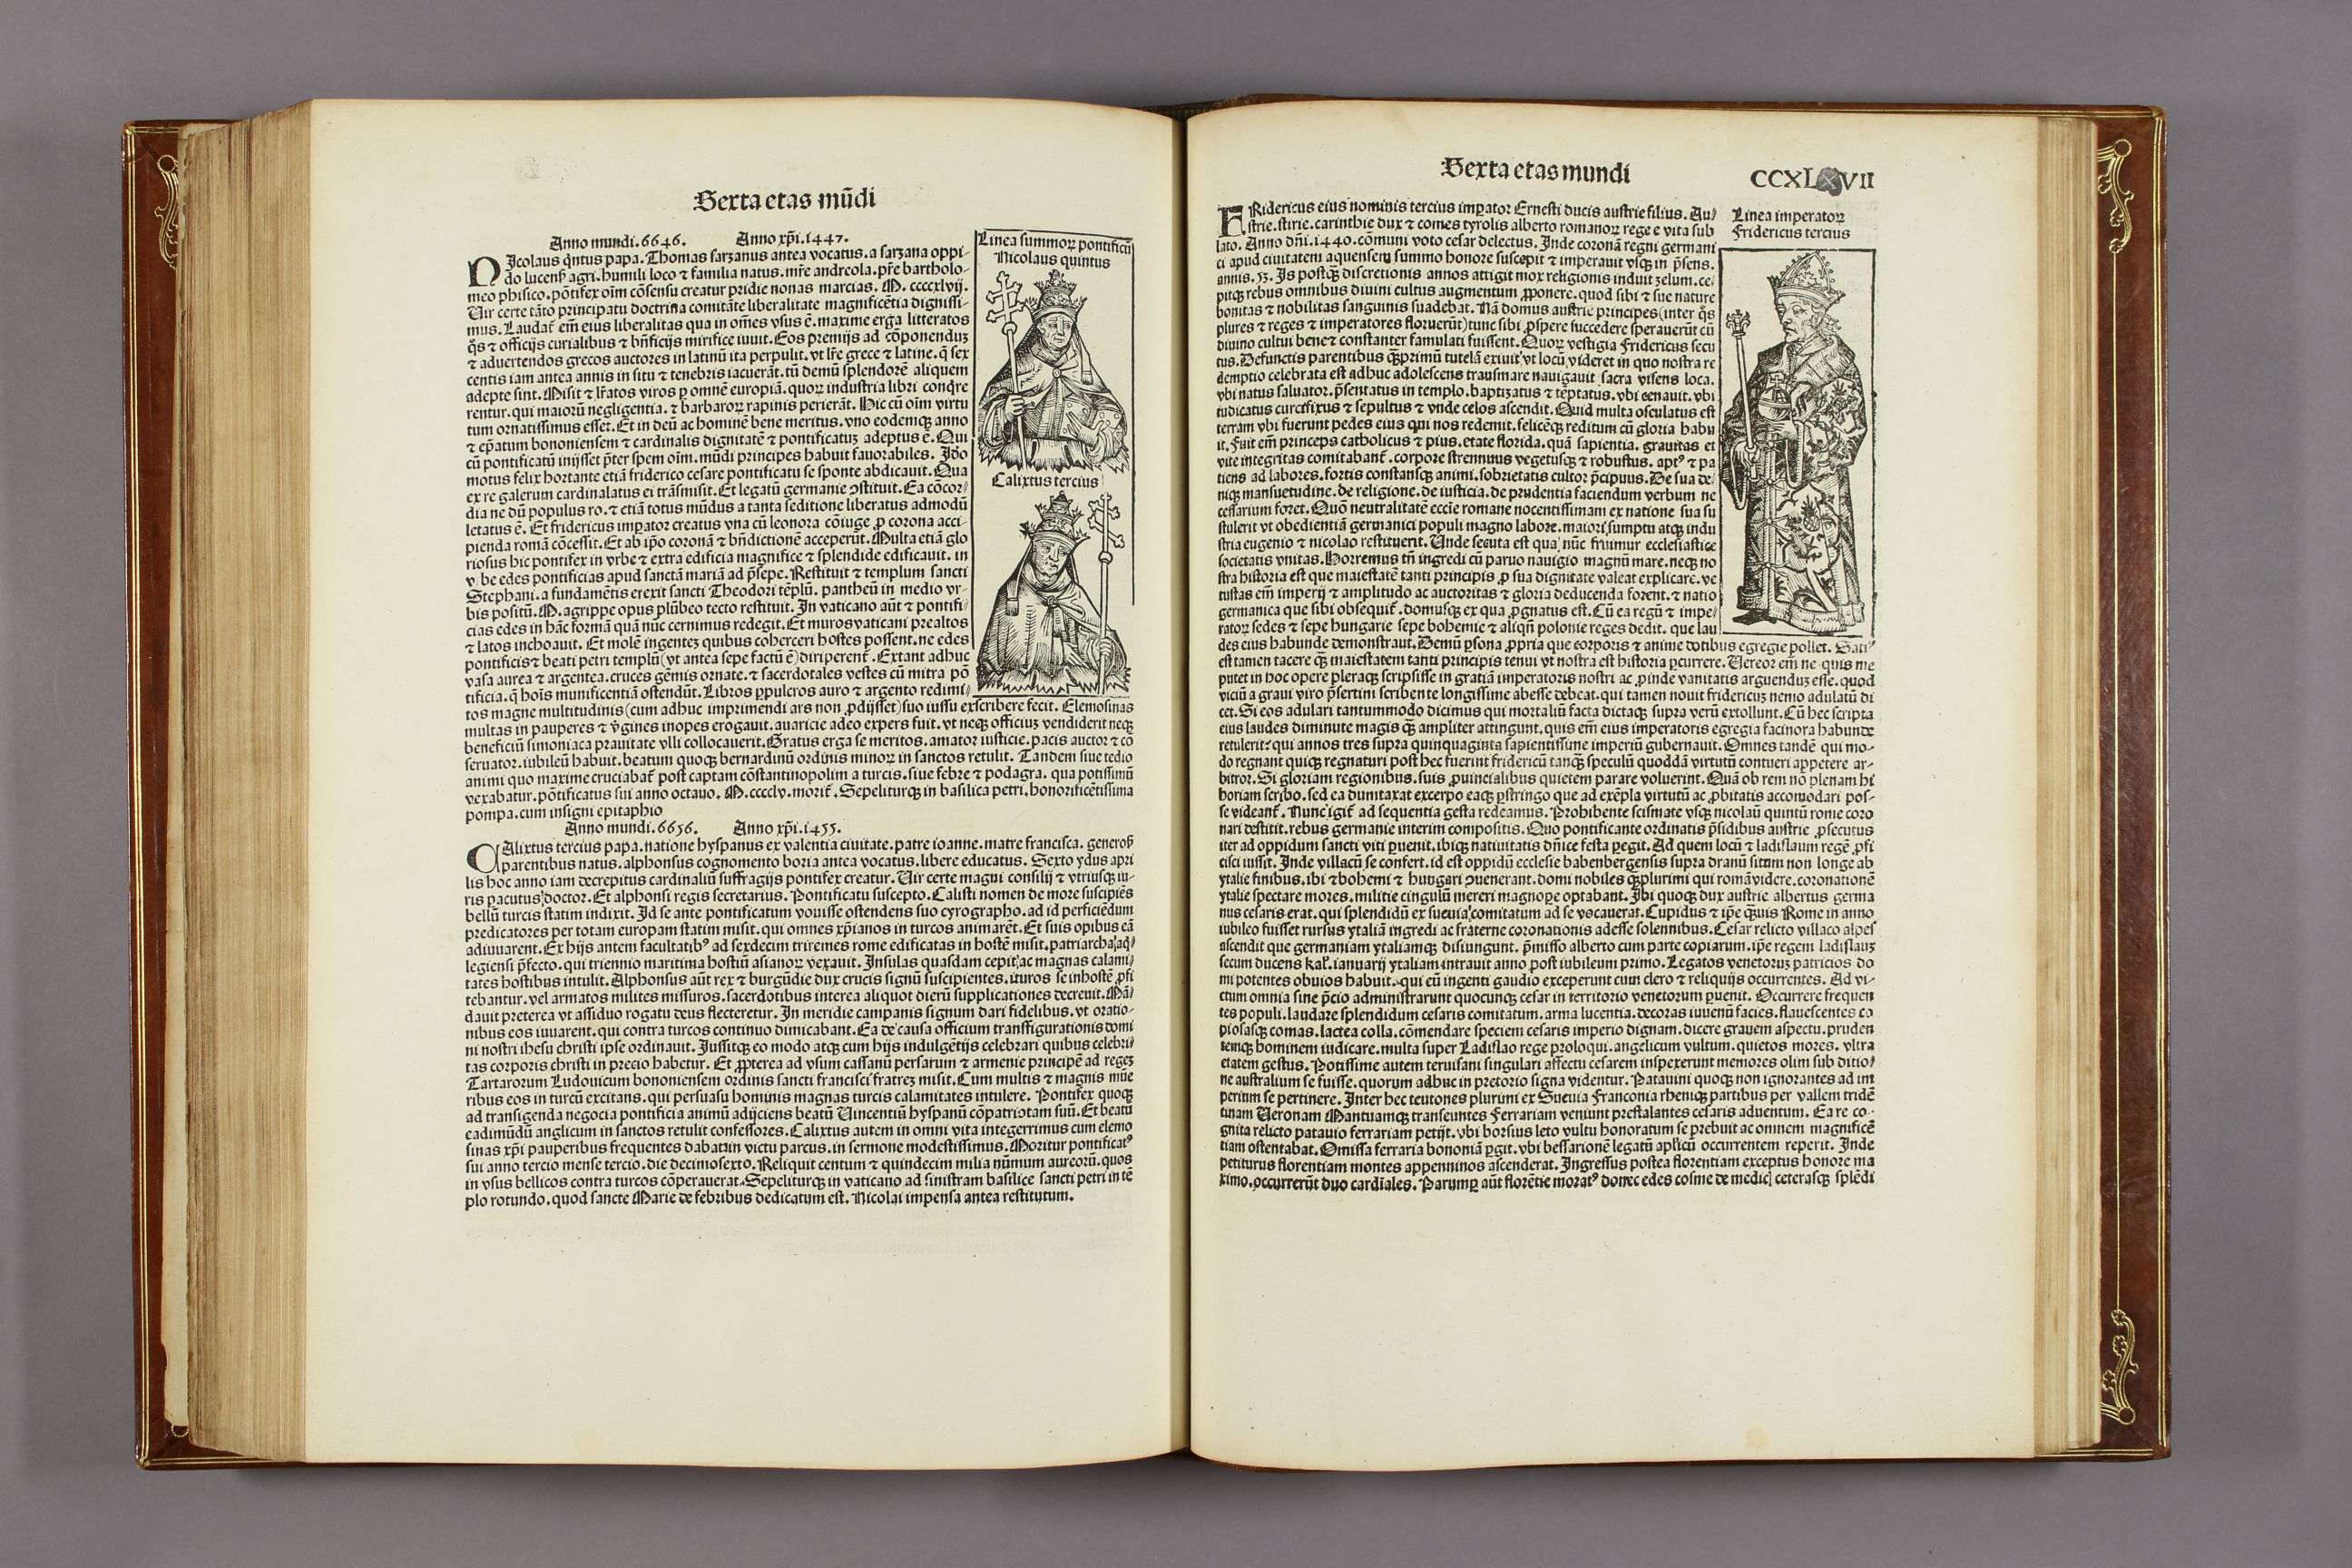 Sexta etas mũdi
Anno mundi.6646. Anno xp̃i.1447.
Linea summoꝝ pontificũ
Nicolaus quintus
NIcolaus q̃ntus papa. Thomas sarzanus antea vocatus. a sarzana oppi-
do lucenß agri. humili loco ⁊ familia natus. mr̃e andreola. pr̃e bartholo-
meo phisico. põtifex oĩm cõsensu creatur pridie nonas marcias. M. ccccxlvij.
Uir certe tãto principatu doctrina comitãte liberalitate magnificẽtia digniss̃i-
mus. Laudat̃ em̃ eius liberalitas qua in om̃es vsus ẽ. maxime erga litteratos
q̃s ⁊ officijs curialibus ⁊ bñficijs mirifice iuuit. Eos premijs ad cõponenduz
⁊ aduertendos grecos auctores in latinũ ita perpulit. vt lr̃e grece ⁊ latine. q̃ sex
centis iam antea annis in situ ⁊ tenebris iacuerãt. tũ demũ splendorẽ aliquem
adepte sint. Misit ⁊ lr̃atos viros ꝑ omnẽ europiã. quoꝝ industria libri conqre
rentur. qui maiorũ negligentia. ⁊ barbaroꝝ rapinis perierãt. Hic cũ oĩm virtu
tum ornatissimus esset. Et in deũ ac hominẽ bene meritus. vno eodemqꝫ anno
⁊ ep̃atum bononiensem ⁊ cardinalis dignitatẽ ⁊ pontificatuꝫ adeptus ẽ. Qui
cũ pontificatũ inijsset p̃ter spem oĩm. mũdi principes habuit fauorabiles. Id̃o
motus felix hortante etiã friderico cesare pontificatu se sponte abdicauit. Qua
ex re galerum cardinalatus ei trãsmisit. Et legatũ germanie ꝯstituit. Ea cõcor-
dia ne dũ populus ro. ⁊ etiã totus mũdus a tanta seditione liberatus admodũ
letatus ẽ. Et fridericus imꝑator creatus vna cũ leonora cõiuge ꝓ corona acci-
pienda romã cõcessit. Et ab ip̃o coronã ⁊ bñdictionẽ acceperũt. Multa etiã glo
riosus hic pontifex in vrbe ⁊ extra edificia magnifice ⁊ splendide edificauit. in
v be edes pontificias apud sanctã mariã ad p̃sepe. Restituit ⁊ templum sancti
Stephani. a fundamẽtis erexit sancti Theodori tẽplũ. pantheũ in medio vr-
bis positũ. M. agrippe opus plũbeo tecto restituit. In vaticano aũt ⁊ pontifi-
cias edes in hãc formã quã nũc cernimus redegit. Et muros vaticani prealtos
⁊ latos inchoauit. Et molẽ ingentez quibus coherceri hostes possent. ne edes
pontificis ⁊ beati petri templũ(vt antea sepe factũ ẽ)diriperent̃. Extant adhuc
vasa aurea ⁊ argentea. cruces gẽmis ornate. ⁊ sacerdotales vestes cũ mitra põ
tificia. q̃ hoĩs munificentiã ostendũt. Libros ꝑpulcros auro ⁊ argento redimi-
Calixtus tercius
tos magne multitudinis(cum adhuc imprimendi ars non ꝓdijsset)suo iussu exscribere fecit. Elemosinas
multas in pauperes ⁊ v̾gines inopes erogauit. auaricie adeo expers fuit. vt neqꝫ officiuz vendiderit neqꝫ
beneficiũ simoniaca prauitate vlli collocauerit. Gratus erga se meritos. amator iusticie. pacis auctor ⁊ cõ
seruator. iubileũ habuit. beatum quoqꝫ bernardinũ ordinis minoꝝ in sanctos retulit. Tandem siue tedio
animi quo maxime cruciabat̃ post captam cõstantinopolim a turcis. siue febre ⁊ podagra. qua potissimũ
vexabatur. põtificatus sui anno octauo. M.cccclv. morit̃. Sepeliturqꝫ in basilica petri. honorificẽtissima
pompa. cum insigni epitaphio
Anno mundi.6656. Anno xp̃i.1455.
CAlixtus tercius papa. natione hyspanus ex valentia ciuitate. patre ioanne. matre francisca. generoß
parentibus natus. alphonsus cognomento boria antea vocatus. libere educatus. Sexto ydus apri
lis hoc anno iam decrepitus cardinaliũ suffragijs pontifex creatur. Uir certe magni consilij ⁊ vtriusqꝫ iu-
ris ꝑacutus doctor. Et alphonsi regis secretarius. Pontificatu suscepto. Calisti nomen de more suscipiẽs
bellũ turcis statim indixit. Id se ante pontificatum vouisse ostendens suo cyrographo. ad id perficiẽdum
predicatores per totam europam statim misit. qui omnes xp̃ianos in turcos animarẽt. Et suis opibus eã
adiuuarent. Ex hijs antem facultatib⁹ ad sexdecim triremes rome edificatas in hostẽ misit. patriarcha aq̃-
legiensi p̃fecto. qui triennio maritima hostiũ asianoꝝ vexauit. Insulas quasdam cepit ac magnas calami-
tates hostibus intulit. Alphonsus aũt rex ⁊ burgũdie dux crucis signũ suscipientes. ituros se in hostẽ ꝓfi
tebantur. vel armatos milites missuros. sacerdotibus interea aliquot dierũ supplicationes decreuit. Mã-
dauit preterea vt assiduo rogatu deus flecteretur. In meridie campanis signum dari fidelibus. vt oratio-
nibus eos iuuarent. qui contra turcos continuo dimicabant. Ea de causa officium transfigurationis domi
ni nostri ihesu christi ipse ordinauit. Jussitqꝫ eo modo atqꝫ cum hijs indulgẽtijs celebrari quibus celebri-
tas corporis christi in precio habetur. Et ꝓpterea ad vsum cassanũ persarum ⁊ armenie principẽ ad regez
Tartarorum Ludouicum bononiensem ordinis sancti francisci fratrez misit. Cum multis ⁊ magnis mũe
ribus eos in turcũ excitans. qui persuasu hominis magnas turcis calamitates intulere. Pontifex quoqꝫ
ad transigenda negocia pontificia animũ adijciens beatũ Uincentiũ hyspanũ cõpatriotam suũ. Et beatũ
eadimũdũ anglicum in sanctos retulit confessores. Calixtus autem in omni vita integerrimus cum elemo
sinas xp̃i pauperibus frequentes dabat in victu parcus. in sermone modestissimus. Moritur pontificat⁹
sui anno tercio mense tercio. die decimosexto. Reliquit centum ⁊ quindecim milia nũmum aureorũ. quos
in vsus bellicos contra turcos cõperauerat. Sepeliturqꝫ in vaticano ad sinistram basilice sancti petri in tẽ
plo rotundo. quod sancte Marie de febribus dedicatum est. Nicolai impensa antea restitutum.
Sexta etas mundi
CCXL VII
Linea imperatoꝝ
Fridericus tercius
FRidericus eius nominis tercius imꝑator Ernesti ducis austrie filius. Au-
strie. stirie. carinthie dux ⁊ comes tyrolis alberto romanoꝝ rege e vita sub
lato. Anno dñi.1440. cõmuni voto cesar delectus. Inde coronã regni germani
ci apud ciuitatem aquensem summo honore suscepit ⁊ imperauit vsqꝫ in p̃sens.
annis.53. Is postqꝫ̃ discretionis annos attigit mox religionis induit zelum. ce-
pitqꝫ rebus omnibus diuini cultus augmentum ꝓponere. quod sibi ⁊ sue nature
bonitas ⁊ nobilitas sanguinis suadebat. Nã domus austrie principes(inter q̃s
plures ⁊ reges ⁊ imperatores floruerũt)tunc sibi ꝓspere succedere sperauerũt cũ
diuino cultui bene ⁊ constanter famulati fuissent. Quoꝝ vestigia Fridericus secu
tus. Defunctis parentibus qꝫ̃primũ tutelã exiuit vt locũ videret in quo nostra re
demptio celebrata est adhuc adolescens trausmare nauigauit sacra visens loca.
vbi natus saluator. p̃sentatus in templo. baptizatus ⁊ tẽptatus. vbi cenauit. vbi
iudicatus curcifixus ⁊ sepultus ⁊ vnde celos ascendit. Quid multa osculatus est
terram vbi fuerunt pedes eius qui nos redemit. felicẽqꝫ reditum cũ gloria habu
it. Fuit em̃ princeps catholicus ⁊ pius. etate florida. quã sapientia. grauitas et
vite integritas comitabant̃. corpore strennuus vegetusqꝫ ⁊ robustus. apt⁹ ⁊ pa
tiens ad labores. fortis constansqꝫ animi. sobrietatis cultor p̃cipuus. De sua de-
niqꝫ mansuetudine. de religione. de iusticia. de prudentia faciendum verbum ne
cessarium foret. Quõ neutralitatẽ eccĩe romane nocentissimam ex natione sua su
stulerit vt obedientiã germanici populi magno labore. maiori sumptu atqꝫ indu
stria eugenio ⁊ nicolao restituerit. Unde secuta est qua nũc fruimur ecclesiastice
societatis vnitas. Horremus tñ ingredi cũ paruo nauigio magnũ mare. neqꝫ no
stra historia est que maiestatẽ tanti principis ꝓ sua dignitate valeat explicare. ve
tustas em̃ imperij ⁊ amplitudo ac auctoritas ⁊ gloria deducenda forent. ⁊ natio
germanica que sibi obsequit̃. domusqꝫ ex qua ꝓgnatus est. Cũ ea regũ ⁊ impe-
ratoꝝ sedes ⁊ sepe hungarie sepe bohemie ⁊ aliqñ polonie reges dedit. que lau
des eius habunde demonstraut. Demũ ꝑsona ꝓpria que corporis ⁊ anime dotibus egregie pollet. Sati⁹
est tamen tacere qꝫ̃ maiestatem tanti principis tenui vt nostra est historia ꝑcurrere. Uereor em̃ ne quis me
putet in hoc opere pleraqꝫ scripsisse in gratiã imperatoris nostri ac ꝓinde vanitatis arguenduz esse. quod
viciũ a graui viro p̃sertini scribente longissime abesse debeat. qui tamen nouit fridericuz nemo adulatũ di
cet. Si eos adulari tantummodo dicimus qui mortaliũ facta dictaqꝫ supra verũ extollunt. Cũ hec scripta
eius laudes diminute magis qꝫ̃ ampliter attingunt. quis em̃ eius imperatoris egregia facinora habunde
retulerit? qui annos tres supra quinquaginta sapientissime imperiũ gubernauit. Omnes tandẽ qui mo-
do regnant quiqꝫ regnaturi post hec fuerint fridericũ tanqꝫ̃ speculũ quoddã virtutũ contueri appetere ar-
bitror. Si gloriam regionibus. suis ꝓuincialibus quietem parare voluerint. Quã ob rem nõ plenam hi
storiam scribo. sed ea duntaxat excerpo eaqꝫ ꝑstringo que ad exẽpla virtutũ ac ꝓbitatis accomodari pos-
se videant̃. Nunc igit̃ ad sequentia gesta redeamus. Prohibente scismate vsqꝫ nicolaũ quintũ rome coro
nari destitit. rebus germanie interim compositis. Quo pontificante ordinatis p̃sidibus austrie ꝓsecutus
iter ad oppidum sancti viti ꝑuenit. ibiqꝫ natiuitatis dñice festa ꝑegit. Ad quem locũ ⁊ ladislaum regẽ ꝓfi
cisci iussit. Inde villacũ se confert. id est oppidũ ecclesie babenbergensis supra dranũ situm non longe ab
ytalie finibus. ibi ⁊ bohemi ⁊ hungari ꝯuenerant. domi nobiles qꝫ̃plurimi qui romã videre. coronationẽ
ytalie spectare mores. militie cingulũ mereri magnoꝑe optabant. Ibi quoqꝫ dux austrie albertus germa
nus cesaris erat. qui splendidũ ex sueuia comitatum ad se vocauerat. Cupidus ⁊ ip̃e qꝫ̃uis Rome in anno
iubileo fuisset rursus ytaliã ingredi ac fraterne coronationis adesse solennibus. Cesar relicto villaco alpes
ascendit que germaniam ytaliamqꝫ disiungunt. p̃misso alberto cum parte copiarum. ip̃e regem ladislauz
secum ducens kal̃. ianuarij ytaliam intrauit anno post iubileum primo. Legatos venetoruz patricios do
mi potentes obuios habuit. qui eũ ingenti gaudio exceperunt cum clero ⁊ reliquijs occurrentes. Ad vi-
ctum omnia sine p̃cio administrarunt quocunqꝫ cesar in territorio venetorum ꝑuenit. Occurrere frequen
tes populi. laudare splendidum cesaris comitatum. arma lucentia. decoras iuuenũ facies. flauescentes co
piosasqꝫ comas. lactea colla. cõmendare speciem cesaris imperio dignam. dicere grauem aspectu. pruden
temqꝫ hominem iudicare. multa super Ladislao rege proloqui. angelicum vultum. quietos mores. vltra
etatem gestus. Potissime autem teruisani singulari affectu cesarem inspexerunt memores olim sub ditio-
ne australium se fuisse. quorum adhuc in pretorio signa videntur. Patauini quoqꝫ non ignorantes ad im
perium se pertinere. Inter hec teutones plurimi ex Sueuia Franconia rheniqꝫ partibus per vallem tridẽ
tinam Ueronam Mantuamqꝫ transeuntes Ferrariam veniunt prestalantes cesaris aduentum. Ea re co-
gnita relicto patauio ferrariam petijt. vbi borsius leto vultu honoratum se prebuit ac omnem magnificẽ
tiam ostentabat. Omissa ferraria bononiã ꝑgit. vbi bessarionẽ legatũ apl̃icũ occurrentem reperit. Inde
petiturus florentiam montes appenninos ascenderat. Ingressus postea florentiam exceptus honore ma
ximo. occurrerũt duo cardĩales. Parumꝑ aũt florẽtie morat⁹ donec edes cosme de medic̃ ceterasqꝫ splẽdi